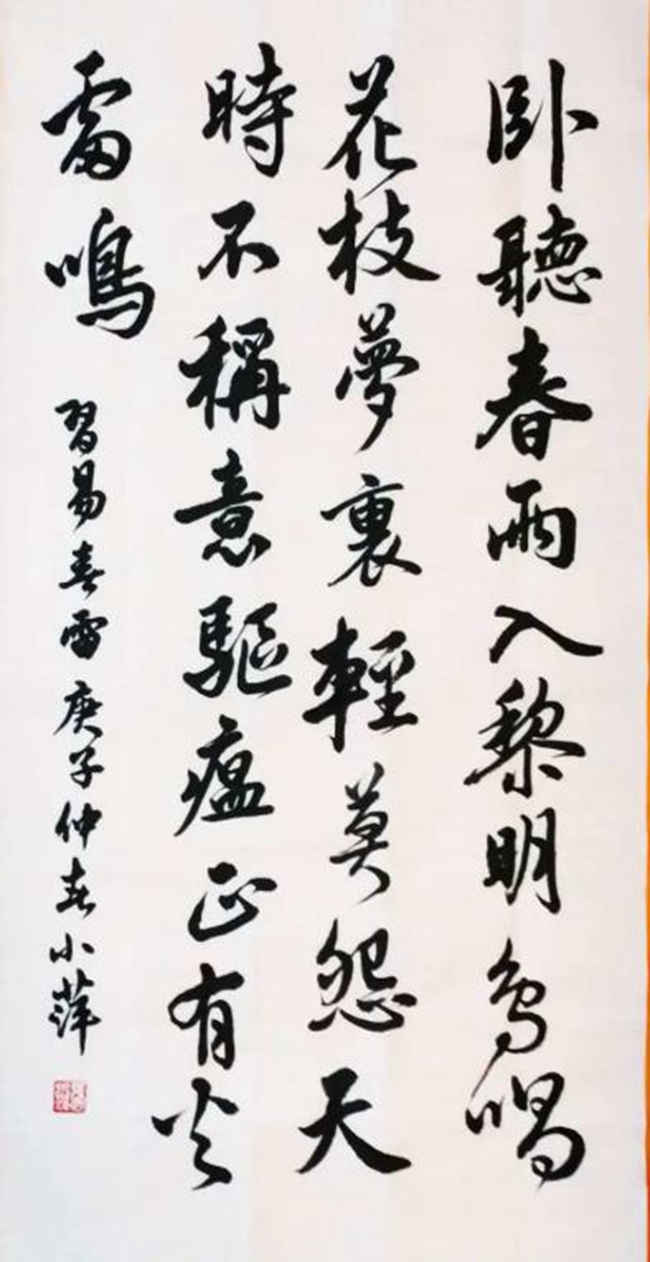 卧聽春雨入黎明鳥唱
花枝夢裏輕莫怨天
時不稱意驅瘟正有火
雷鳴
習易春雷庚子仲春小萍